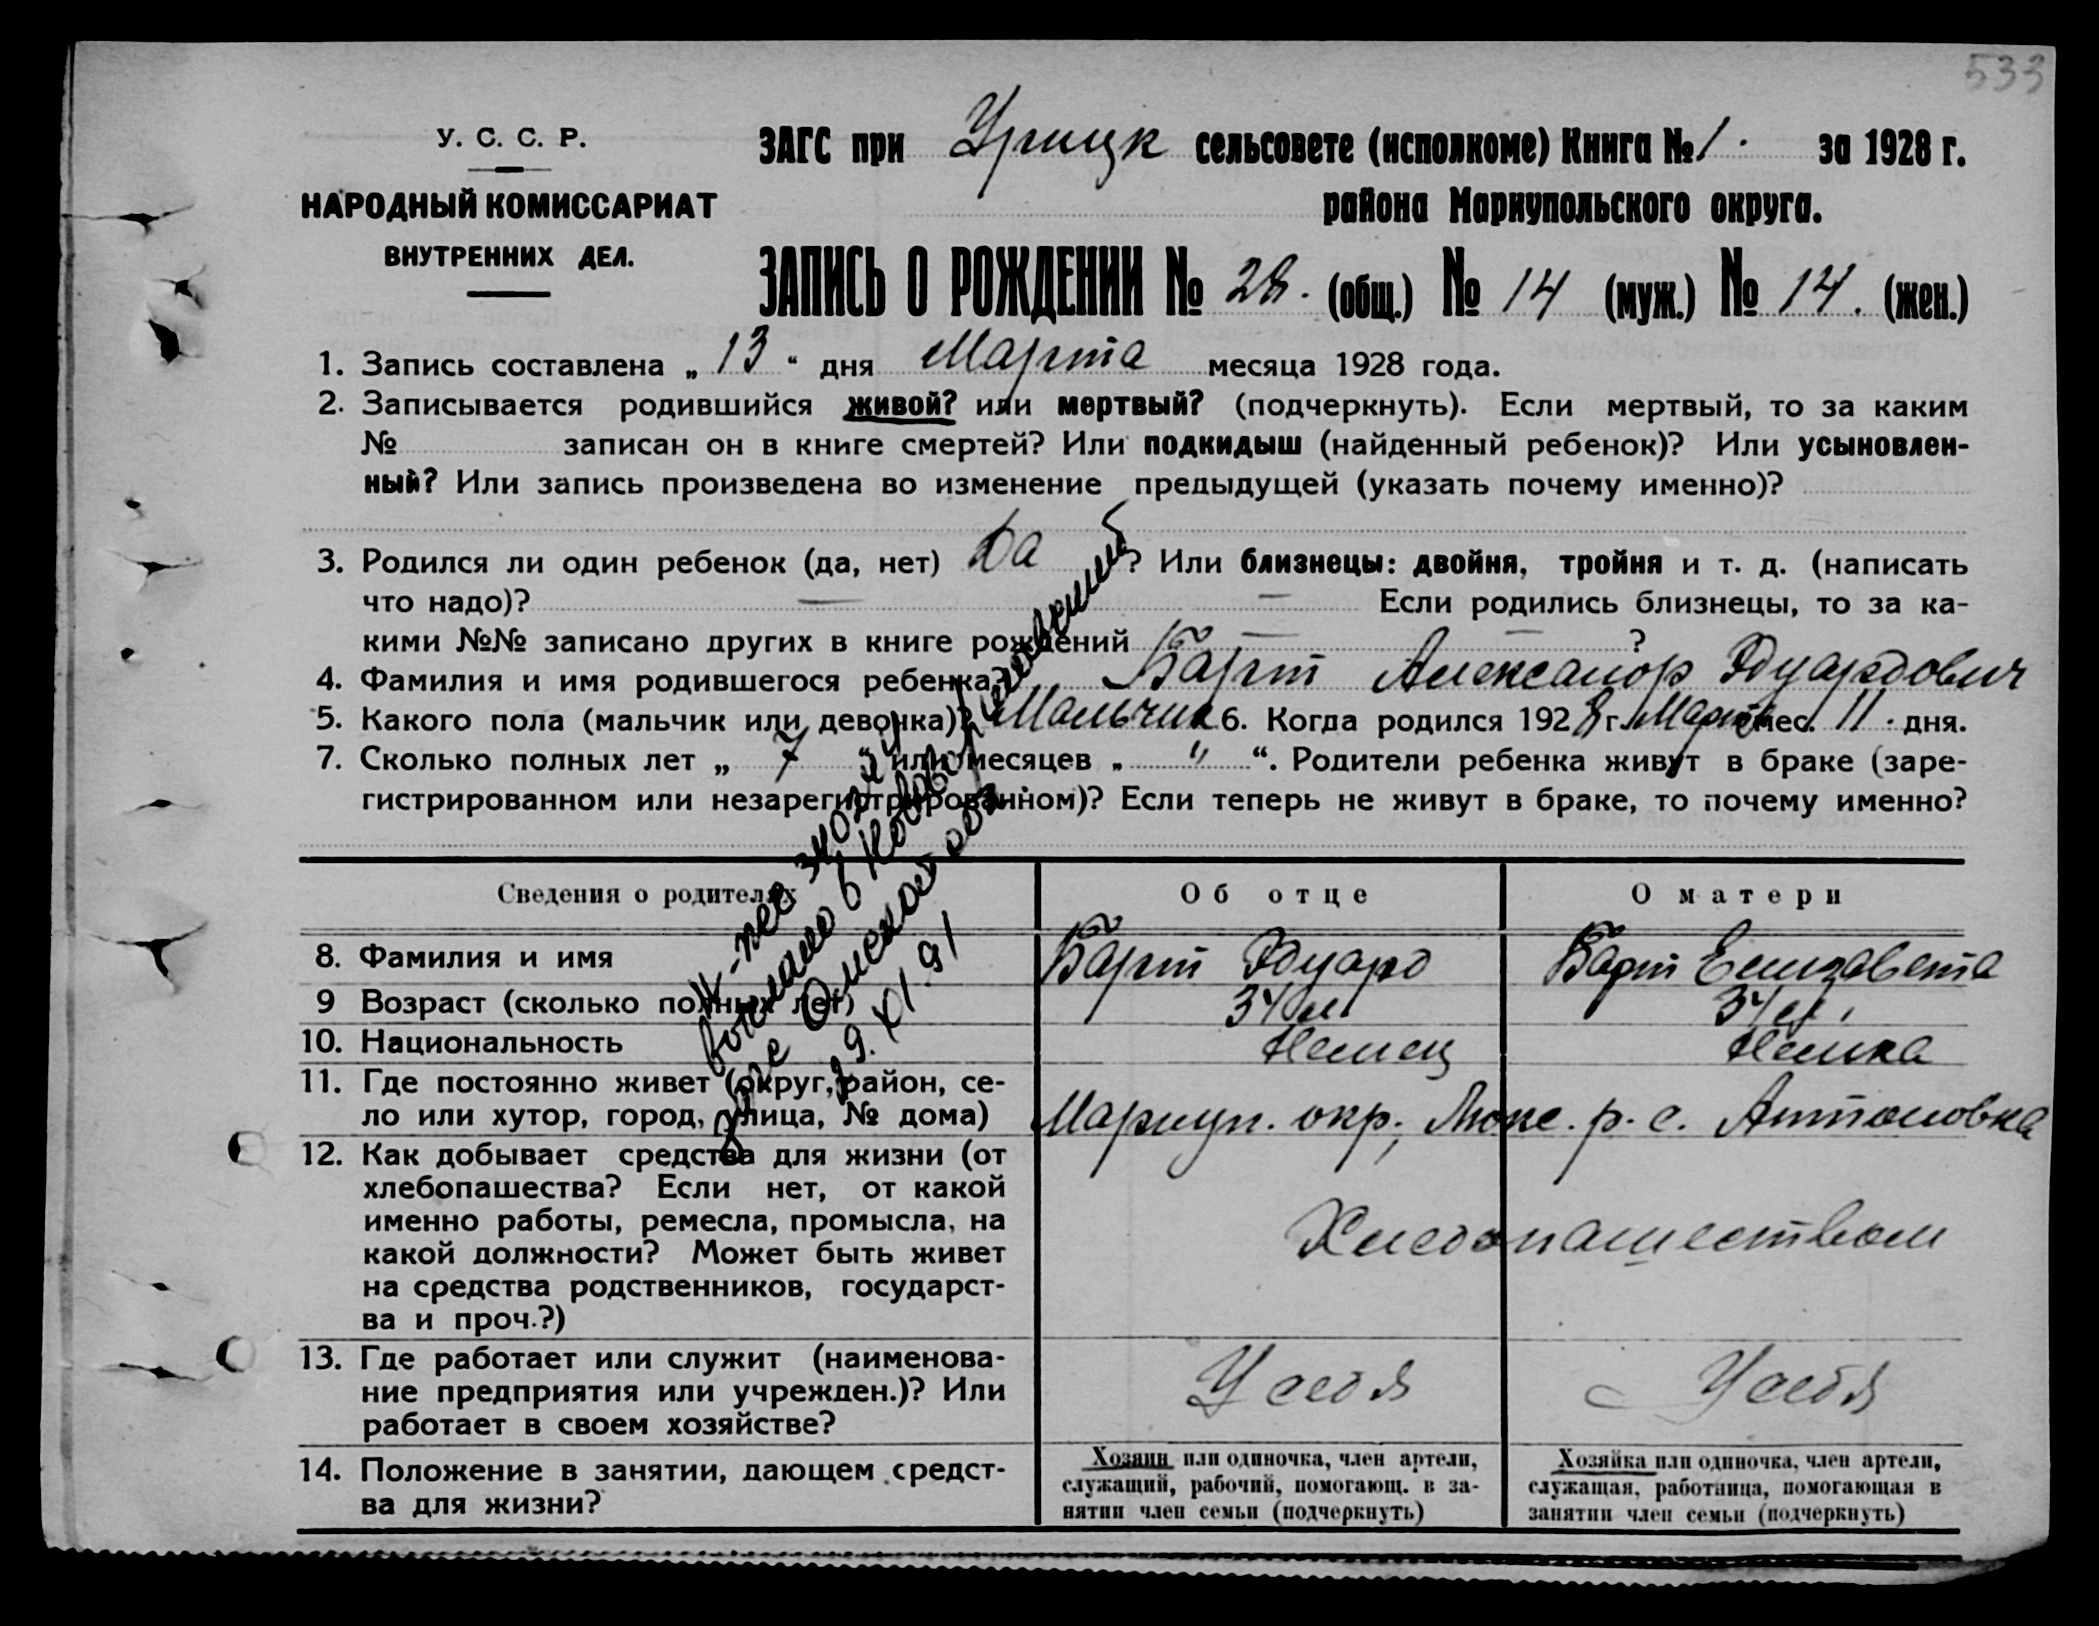 533
У. С. С. Р.
НАРОДНЫЙ КОМИССАРИАТ
ВНУТРЕННИХ ДЕЛ.
ЗАГС при Урицк сельсовете (исполкоме) Книга № 1. за 1928 г.
района Мариупольского округа.
ЗАПИСЬ О РОЖДЕНИИ № 28. (общ.) № 14 (муж.) № 14. (жен.)
1. Запись составлена „ 13 “ дня Марта месяца 1928 года.
2. Записывается родившийся живой? или мертвый? (подчеркнуть). Если мертвый, то за каким
№ записан он в книге смертей? Или подкидыш (найденный ребенок)? Или усыновлен-
ный? Или запись произведена во изменение предыдущей (указать почему именно)?
3. Родился ли один ребенок (да, нет) Да ? Или близнецы: двойня, тройня и т. д. (написать
что надо)? — — Если родились близнецы, то за ка-
кими №№ записано других в книге рождений — — ?
4. Фамилия и имя родившегося ребенка? Барт Александр Эдуардович
5. Какого пола (мальчик или девочка)? Мальчик 6. Когда родился 1928 г. Марта мес. 11 . дня.
7. Сколько полных лет „ 7 “ или месяцев „ " “. Родители ребенка живут в браке (заре-
гистрированном или незарегистрированном)? Если теперь не живут в браке, то почему именно?
выслано в
загс Омской обл.
29.XI.91
Сведения о родителях
Об отце
О матери
8. Фамилия и имя
Барт Эдуард
Барт Елизавета
9 Возраст (сколько полных лет)
34 л.
34 л.
10. Национальность
Немец
Немка
11. Где постоянно живет (округ, район, се-
ло или хутор, город, улица, № дома)
Мариуп. окр., Люкс. р. с. Антоновка
12. Как добывает средства для жизни (от
хлебопашества? Если нет, от какой
именно работы, ремесла, промысла, на
какой должности? Может быть живет
на средства родственников, государст-
ва и проч.?)
Хлебопашеством
13. Где работает или служит (наименова-
ние предприятия или учрежден.)? Или
работает в своем хозяйстве?
У себя
У себя
14. Положение в занятии, дающем средст-
ва для жизни?
Хозяин или одиночка, член артели,
служащий, рабочий, помогающ. в за-
нятии член семьи (подчеркнуть)
Хозяйка или одиночка, член артели,
служащая, работница, помогающая в
занятии член семьи (подчеркнуть)